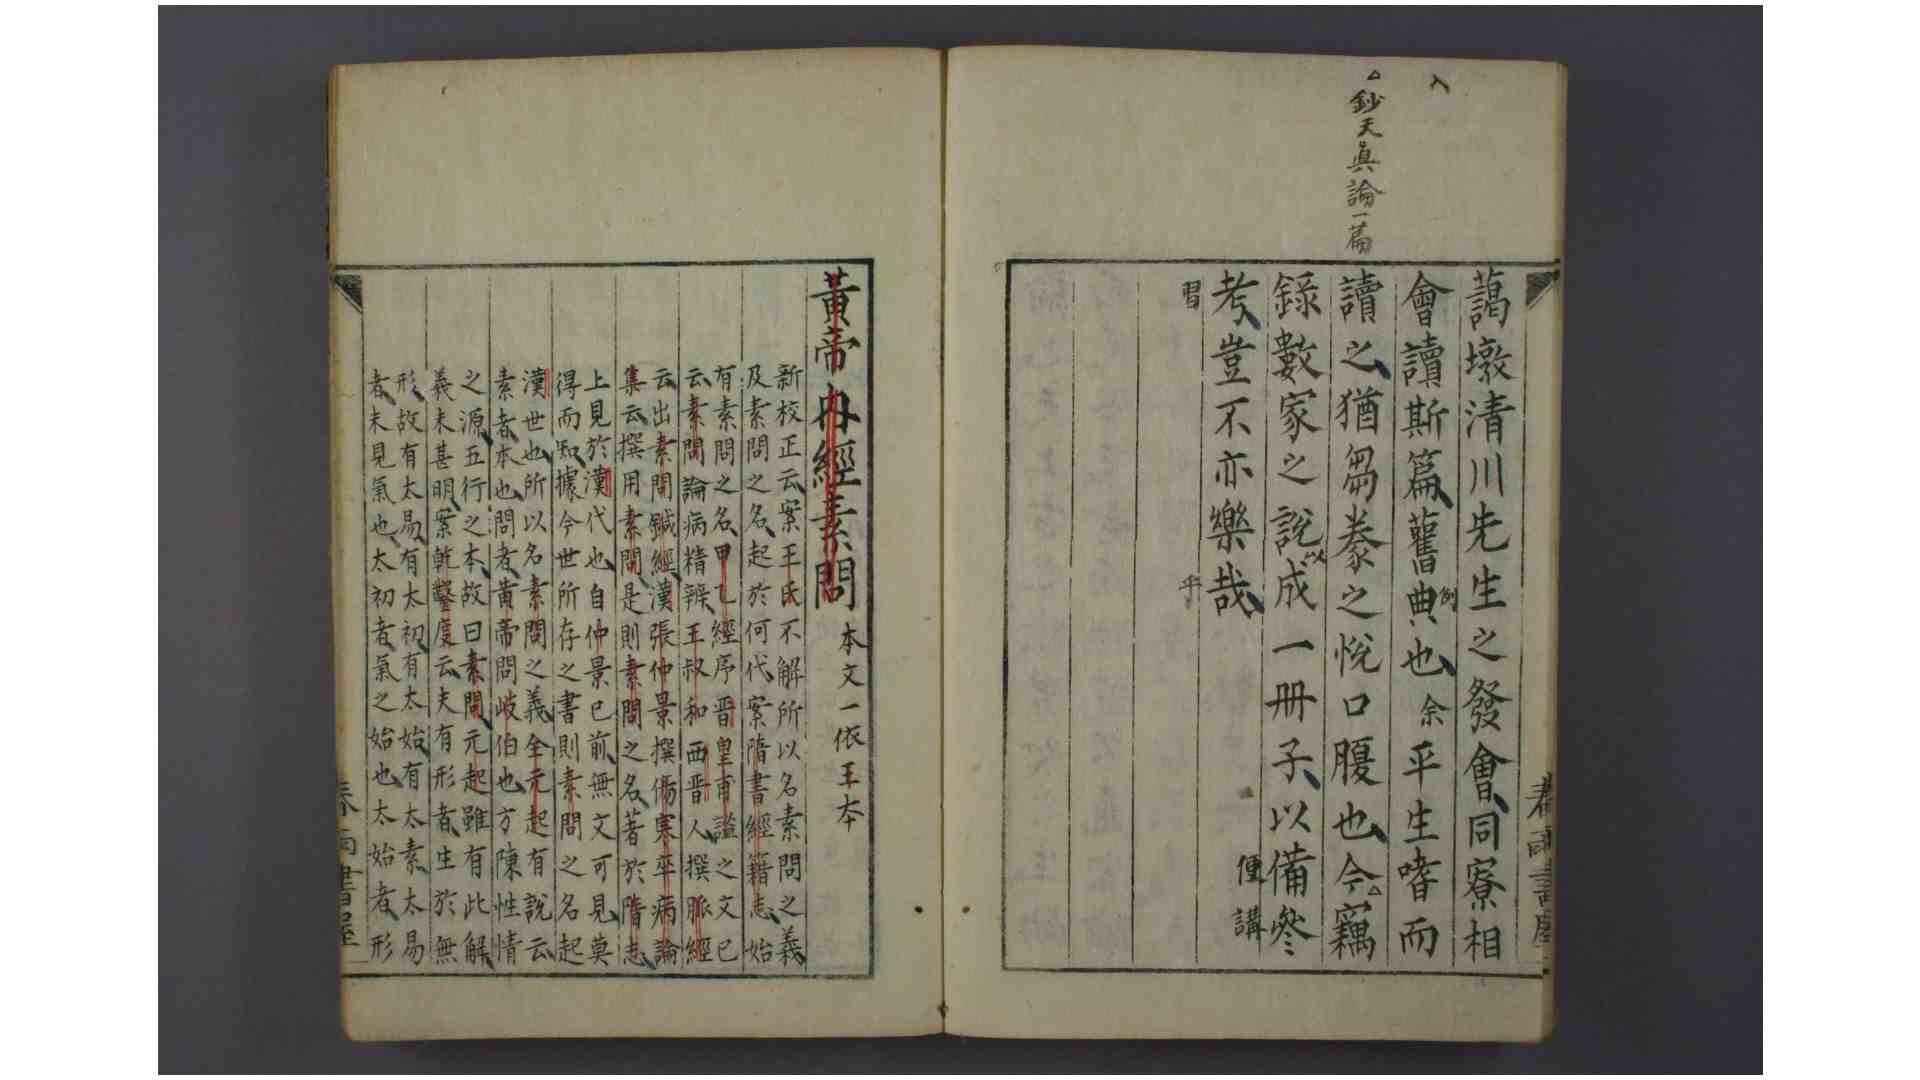 入
△鈔天眞論一篇
藹墩清川先生之發會同寮相
會讀斯篇舊典也余平生嗜而
例
讀之猶芻豢之悅口腹也今竊
錄數家之說成一冊子以備參
以
便講
考豈不亦樂哉
習
乎
黃帝內經素問 本文一依王本
新校正云案王氏不解所以名素問之義
及素問之名起於何代案隋書經籍志始
有素問之名甲乙經序晉皇甫謐之文已
云素問論病精辨王叔和西晉人撰脈經
云出素問鍼經漢張仲景撰傷寒卒病論
集云撰用素問是則素問之名著於隋志
上見於漢代也自仲景已前無文可見莫
得而知據今世所存之書則素問之名起
漢世也所以名素問之義全元起有說云
素者本也問者黃帝問岐伯也方陳性情
之源五行之本故曰素問元起雖有此解
義未甚明案乾鑿度云夫有形者生於無
形故有太易有太初有太始有太素太易
者未見氣也太初者氣之始也太始者形